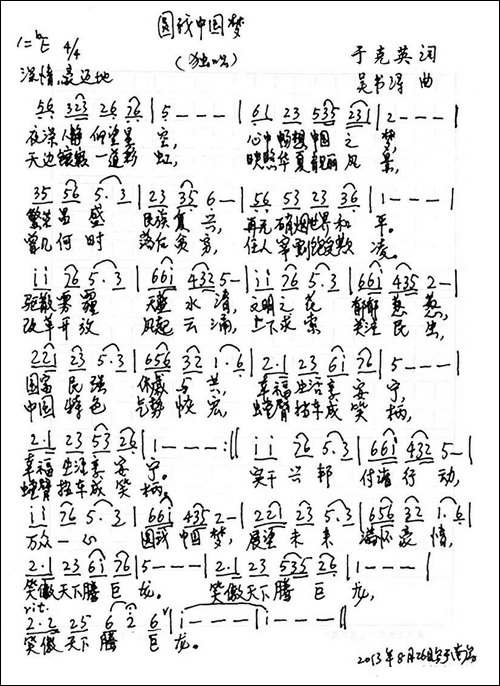 圆我中国梦
(独唱)
1=♭E 4/4
于克英 词
深情、豪迈地
吴书浔 曲
56 323 26 76 | 5 - - - | 61 23 535 231 | 2 - - - |
夜深人静 仰望星 空, 心中畅想中国 之 梦,
天边镶嵌一道彩 虹, 映照华夏靓丽风 景,
35 56 5·3 | 23 35 6 - | 56 53 23 36 | 1 - - - |
繁荣昌 盛 民族复 兴, 再无硝烟世界和 平。
曾几何时 落后贫穷, 任人宰割饱受欺 凌。
i i 76 5·3 | 66i 432 5- | i i 76 5·3 | 66i 435 2- |
驱散雾霾 天蓝 水 清, 文明之花 郁郁 葱 葱,
改革开放 风起云 涌, 上下求索 关注民 生,
221 23 5·3 | 656 32 1·6 | 2·1 23 6i 76 | 5 - - - |
国富 民强 休戚 与 共, 幸福生活享安 宁,
中国 特色 气势 恢 宏, 螳臂挡车成笑 柄,
2·1 23 53 26 | 1 - - - :|| i i 76 5·3 | 66i 432 5- |
幸福 生活享安 宁。 实干兴邦 付诸 行 动,
螳臂挡车成笑 柄。
i i 76 5·3 | 66i 435 2- | 221 23 5·3 | 656 32 1·6 |
万众一心 圆我 中国 梦, 展望 未来 满怀 豪 情,
2·1 23 6i 76 | 5 - - - | 2·1 23 535 26 | 1 - - - |
笑傲天下腾 巨 龙。 笑傲天下腾 巨 龙,
rit.
2·2 25 6 2 6 | i - - - | i - - - ||
笑傲天下 腾 巨 龙。
2013年8月26日